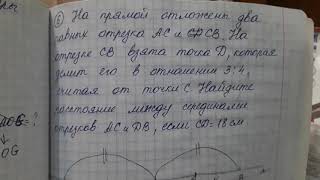 ⑥ На прямой отложены два
равных отрезка АС и СВ. На
отрезке СВ взята точка D, которая
делит его в отношении 3:4,
считая от точки С. Найдите
расстояние между серединами
отрезков АС и DB, если CD = 18 см
= ?
OG